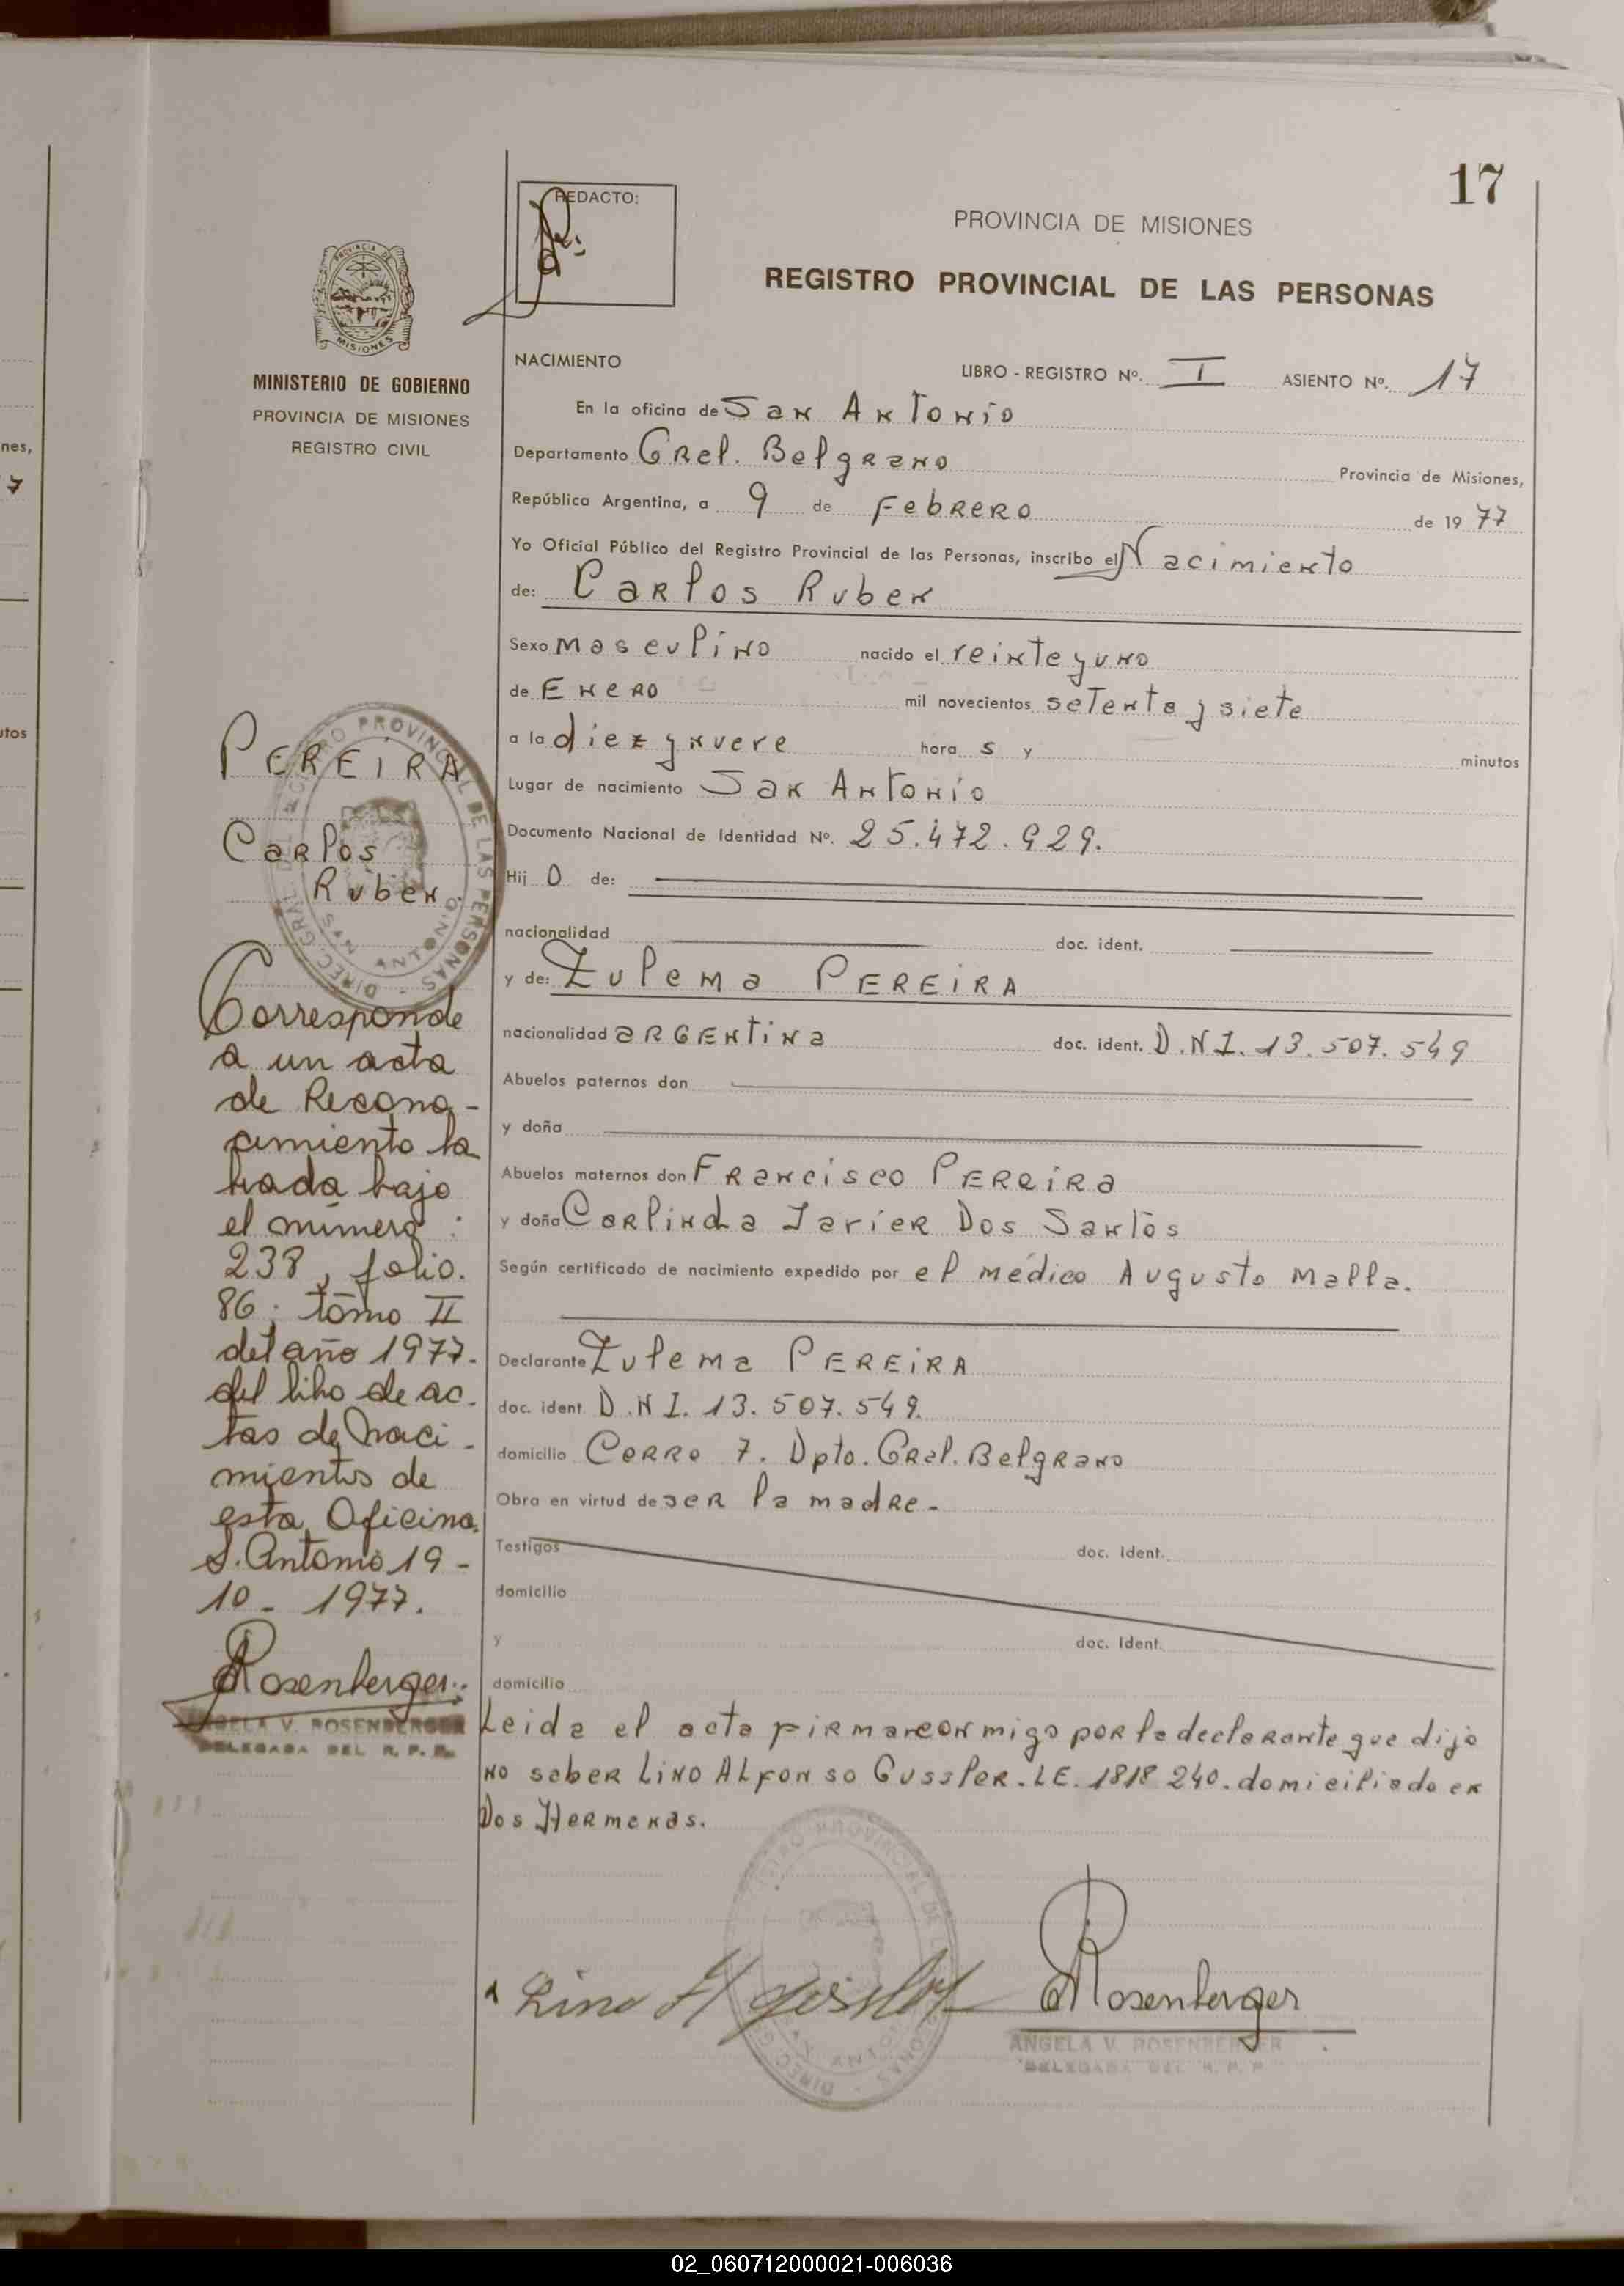 17
REDACTO:
PROVINCIA DE MISIONES
REGISTRO PROVINCIAL DE LAS PERSONAS
MINISTERIO DE GOBIERNO
PROVINCIA DE MISIONES
REGISTRO CIVIL
NACIMIENTO
LIBRO - REGISTRO Nº. I ASIENTO Nº. 17
En la oficina de San Antonio
Departamento Gral. Belgrano Provincia de Misiones,
República Argentina, a 9 de Febrero de 1977
Yo Oficial Público del Registro Provincial de las Personas, inscribo el Nacimiento
de: Carlos Ruben
Sexo masculino nacido el veinte y uno
de Enero mil novecientos setenta y siete
a la diez y nueve hora s y minutos
Lugar de nacimiento San Antonio
Documento Nacional de Identidad Nº. 25.472.929.
Hij o de:
nacionalidad doc. ident.
y de: Zulema PEREIRA
nacionalidad argentina doc. ident. D.N.I. 13.507.549
Abuelos paternos don
y doña
Abuelos maternos don Francisco Pereira
y doña Carlinda Javier Dos Santos
Según certificado de nacimiento expedido por el médico Augusto Malla.
Declarante Zulema PEREIRA
doc. ident. D.N.I. 13.507.549.
domicilio Cerro 7. Dpto. Gral. Belgrano
Obra en virtud de ser la madre.
Testigos doc. Ident.
domicilio
y doc. Ident.
domicilio
Leida el acta firman conmigo por la declarante que dijo
no saber Lino Alfonso Gussler. L.E. 1818240. domiciliado en
Dos Hermanas.
Rosenberger
ANGELA V. ROSENBERGER
DELEGADA DEL R. P. P.
PEREIRA
Carlos
Ruben.
Corresponde
a un acta
de Recono-
cimiento la
brada bajo
el número :
238, folio.
86. tomo II
del año 1977.
del libro de ac.
tas de Naci-
mientos de
esta Oficina.
S. Antonio 19-
10 - 1977.
Rosenberger
ANGELA V. ROSENBERGER
DELEGADA DEL R. P. P.
DIREC. GRAL. DEL REGISTRO PROVINCIAL DE LAS PERSONAS
SAN ANTONIO
nes,
7
utos
02_060712000021-006036